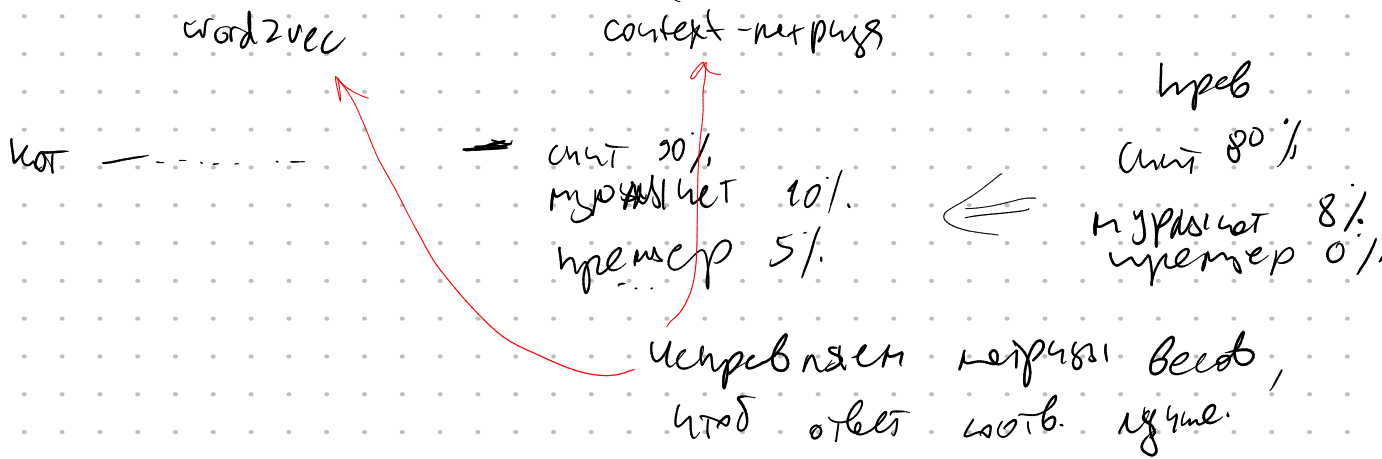 word2vec
context-матрица
прав
кот
спит 90%
мурлычет 10%.
премьер 5%
спит 80%
мурлычет 8%
премьер 0%
исправляем матрицы весов,
чтоб ответ соотв. лучше.